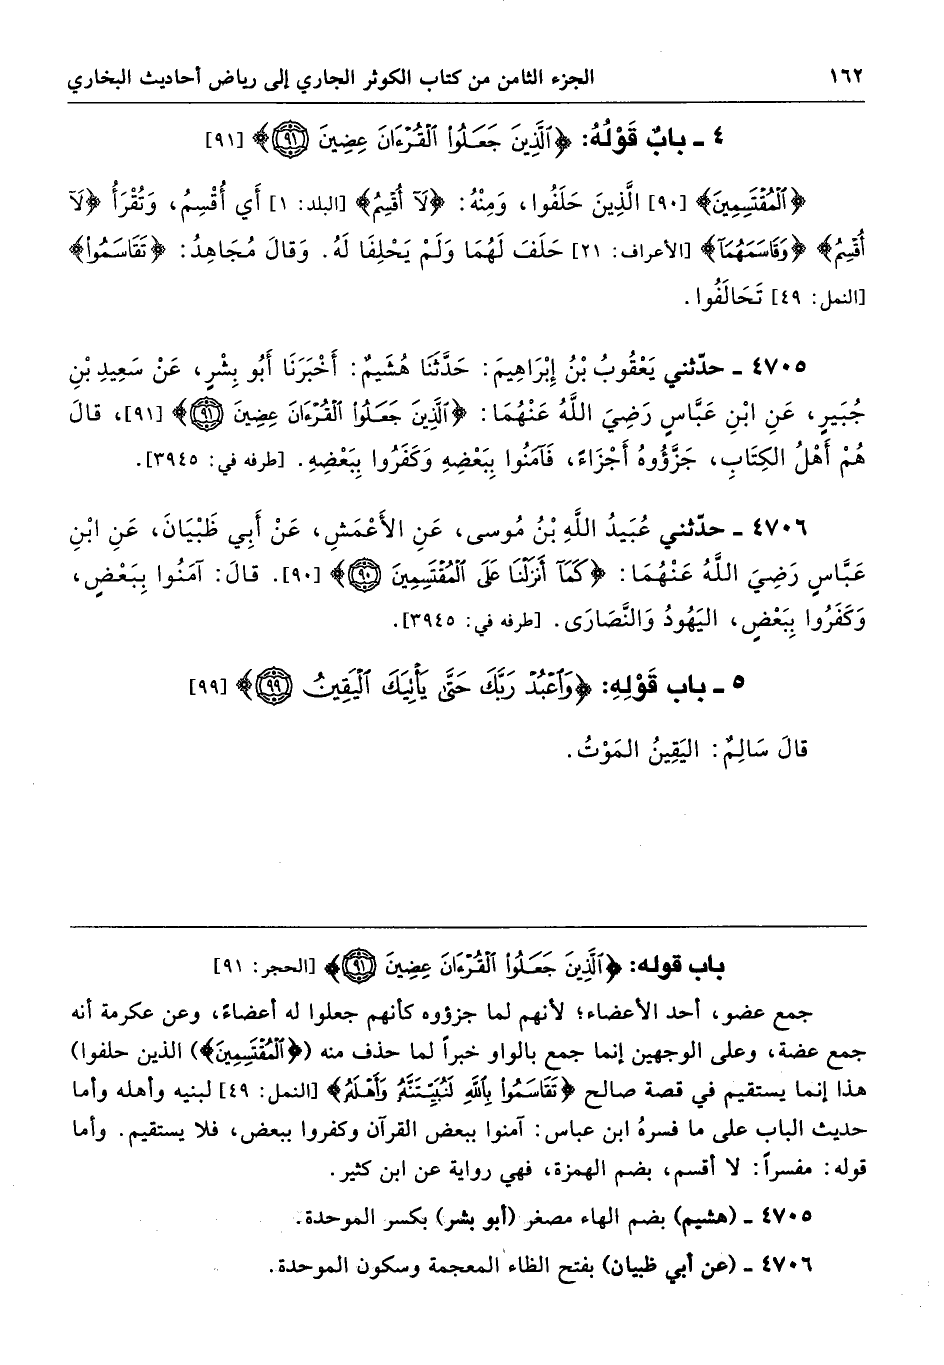 ١٦٢ الجزء الثامن من كتاب الكوثر الجاري إلى رياض أحاديث البخاري
٤ ـ بابٌ قَوْلُهُ: ﴿ٱلَّذِينَ جَعَلُوا۟ ٱلْقُرْءَانَ عِضِينَ ٩١﴾ [٩١]
﴿ٱلْمُقْتَسِمِينَ﴾ [٩٠] الَّذِينَ حَلَفُوا، وَمِنْهُ: ﴿لَآ أُقْسِمُ﴾ [البلد: ١] أَي أُقْسِمُ، وَتُقْرَأُ ﴿لَآ
أُقْسِمُ﴾ ﴿وَقَاسَمَهُمَآ﴾ [الأعراف: ٢١] حَلَفَ لَهُمَا وَلَمْ يَحْلِفَا لَهُ. وَقالَ مُجَاهِدُ: ﴿تَقَاسَمُوا۟﴾
[النمل: ٤٩] تَحَالَفُوا.
٤٧٠٥ ـ حدّثني يَعْقُوبُ بْنُ إِبْرَاهِيمَ: حَدَّثَنَا هُشَيمٌ: أَخْبَرَنَا أَبُو بِشْرٍ، عَنْ سَعِيدِ بْنِ
جُبَيرٍ، عَنِ ابْنِ عَبَّاسٍ رَضِيَ اللَّهُ عَنْهُمَا: ﴿ٱلَّذِينَ جَعَلُوا۟ ٱلْقُرْءَانَ عِضِينَ ٩١﴾ [٩١]، قالَ
هُمْ أَهْلُ الكِتَابِ، جَزَّؤُوهُ أَجْزَاءً، فَآمَنُوا بِبَعْضِهِ وَكَفَرُوا بِبَعْضِهِ. [طرفه في: ٣٩٤٥].
٤٧٠٦ ـ حدّثني عُبَيدُ اللَّهِ بْنُ مُوسى، عَنِ الأَعْمَشِ، عَنْ أَبِي ظَبْيَانَ، عَنِ ابْنِ
عَبَّاسٍ رَضِيَ اللَّهُ عَنْهُمَا: ﴿كَمَآ أَنزَلْنَا عَلَى ٱلْمُقْتَسِمِينَ ٩٠﴾ [٩٠]. قالَ: آمَنُوا بِبَعْضٍ،
وَكَفَرُوا بِبَعْضٍ، اليَهُودُ وَالنَّصَارَى. [طرفه في: ٣٩٤٥].
٥ ـ باب قَوْلِهِ: ﴿وَٱعْبُدْ رَبَّكَ حَتَّىٰ يَأْتِيَكَ ٱلْيَقِينُ ٩٩﴾ [٩٩]
قالَ سَالِمٌ: اليَقِينُ المَوْتُ.
باب قوله: ﴿ٱلَّذِينَ جَعَلُوا۟ ٱلْقُرْءَانَ عِضِينَ ٩١﴾ [الحجر: ٩١]
جمع عضو، أحد الأعضاء؛ لأنهم لما جزؤوه كأنهم جعلوا له أعضاءً، وعن عكرمة أنه
جمع عضة، وعلى الوجهين إنما جمع بالواو خبراً لما حذف منه (﴿ٱلْمُقْتَسِمِينَ﴾) الذين حلفوا)
هذا إنما يستقيم في قصة صالح ﴿تَقَاسَمُوا۟ بِٱللَّهِ لَنُبَيِّتَنَّهُۥ وَأَهْلَهُۥ﴾ [النمل: ٤٩] لبنيه وأهله وأما
حديث الباب على ما فسرهُ ابن عباس: آمنوا ببعض القرآن وكفروا ببعض، فلا يستقيم. وأما
قوله: مفسراً: لا أقسم، بضم الهمزة، فهي رواية عن ابن كثير.
٤٧٠٥ ـ (هشيم) بضم الهاء مصغر (أبو بشر) بكسر الموحدة.
٤٧٠٦ ـ (عن أبي ظبيان) بفتح الظاء المعجمة وسكون الموحدة.